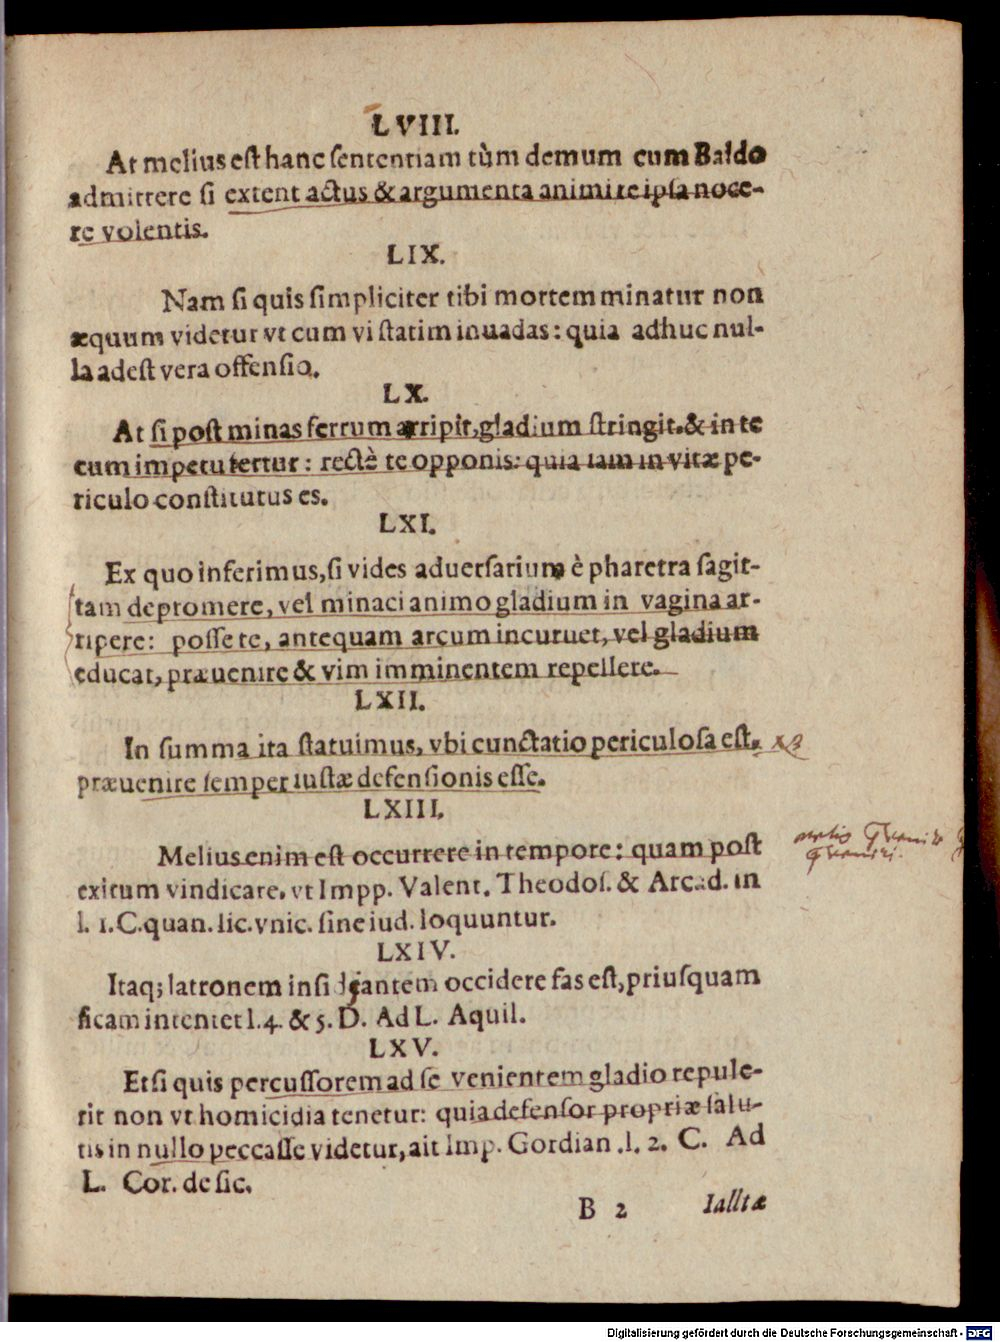 LVIII.
At melius est hanc sententiam tùm demum cum Baldo
admittere si extent actus & argumenta animi re ipsa noce-
re volentis.
LIX.
Nam si quis simpliciter tibi mortem minatur non
æquum videtur vt cum vi statim inuadas: quia adhuc nul-
la adest vera offensio.
LX.
At si post minas ferrum arripit, gladium stringit. & in te
cum impetu fertur: rectè te opponis: quia iam in vitæ pe-
riculo constitutus es.
LXI.
Ex quo inferimus, si vides aduersarium è pharetra sagit-
tam depromere, vel minaci animo gladium in vagina ar-
ripere: posse te, antequam arcum incuruet, vel gladium
educat, præuenire & vim imminentem repellere.
LXII.
In summa ita statuimus, vbi cunctatio periculosa est.
præuenire semper iustæ defensionis esse.
LXIII.
Melius enim est occurrere in tempore: quam post
exitum vindicare. vt Impp. Valent. Theodos. & Arcad. in
l. 1. C. quan. lic. vnic. sine iud. loquuntur.
LXIV.
Itaq; latronem insidiantem occidere fas est, priusquam
sicam intentet l. 4. & 5. D. Ad L. Aquil.
LXV.
Et si quis percussorem ad se venientem gladio repule-
rit non vt homicidia tenetur: quia defensor propriæ salu-
tis in nullo peccasse videtur, ait Imp. Gordian. l. 2. C. Ad
L. Cor. de sic.
B 2 Ialltæ
Digitalisierung gefördert durch die Deutsche Forschungsgemeinschaft - DFG